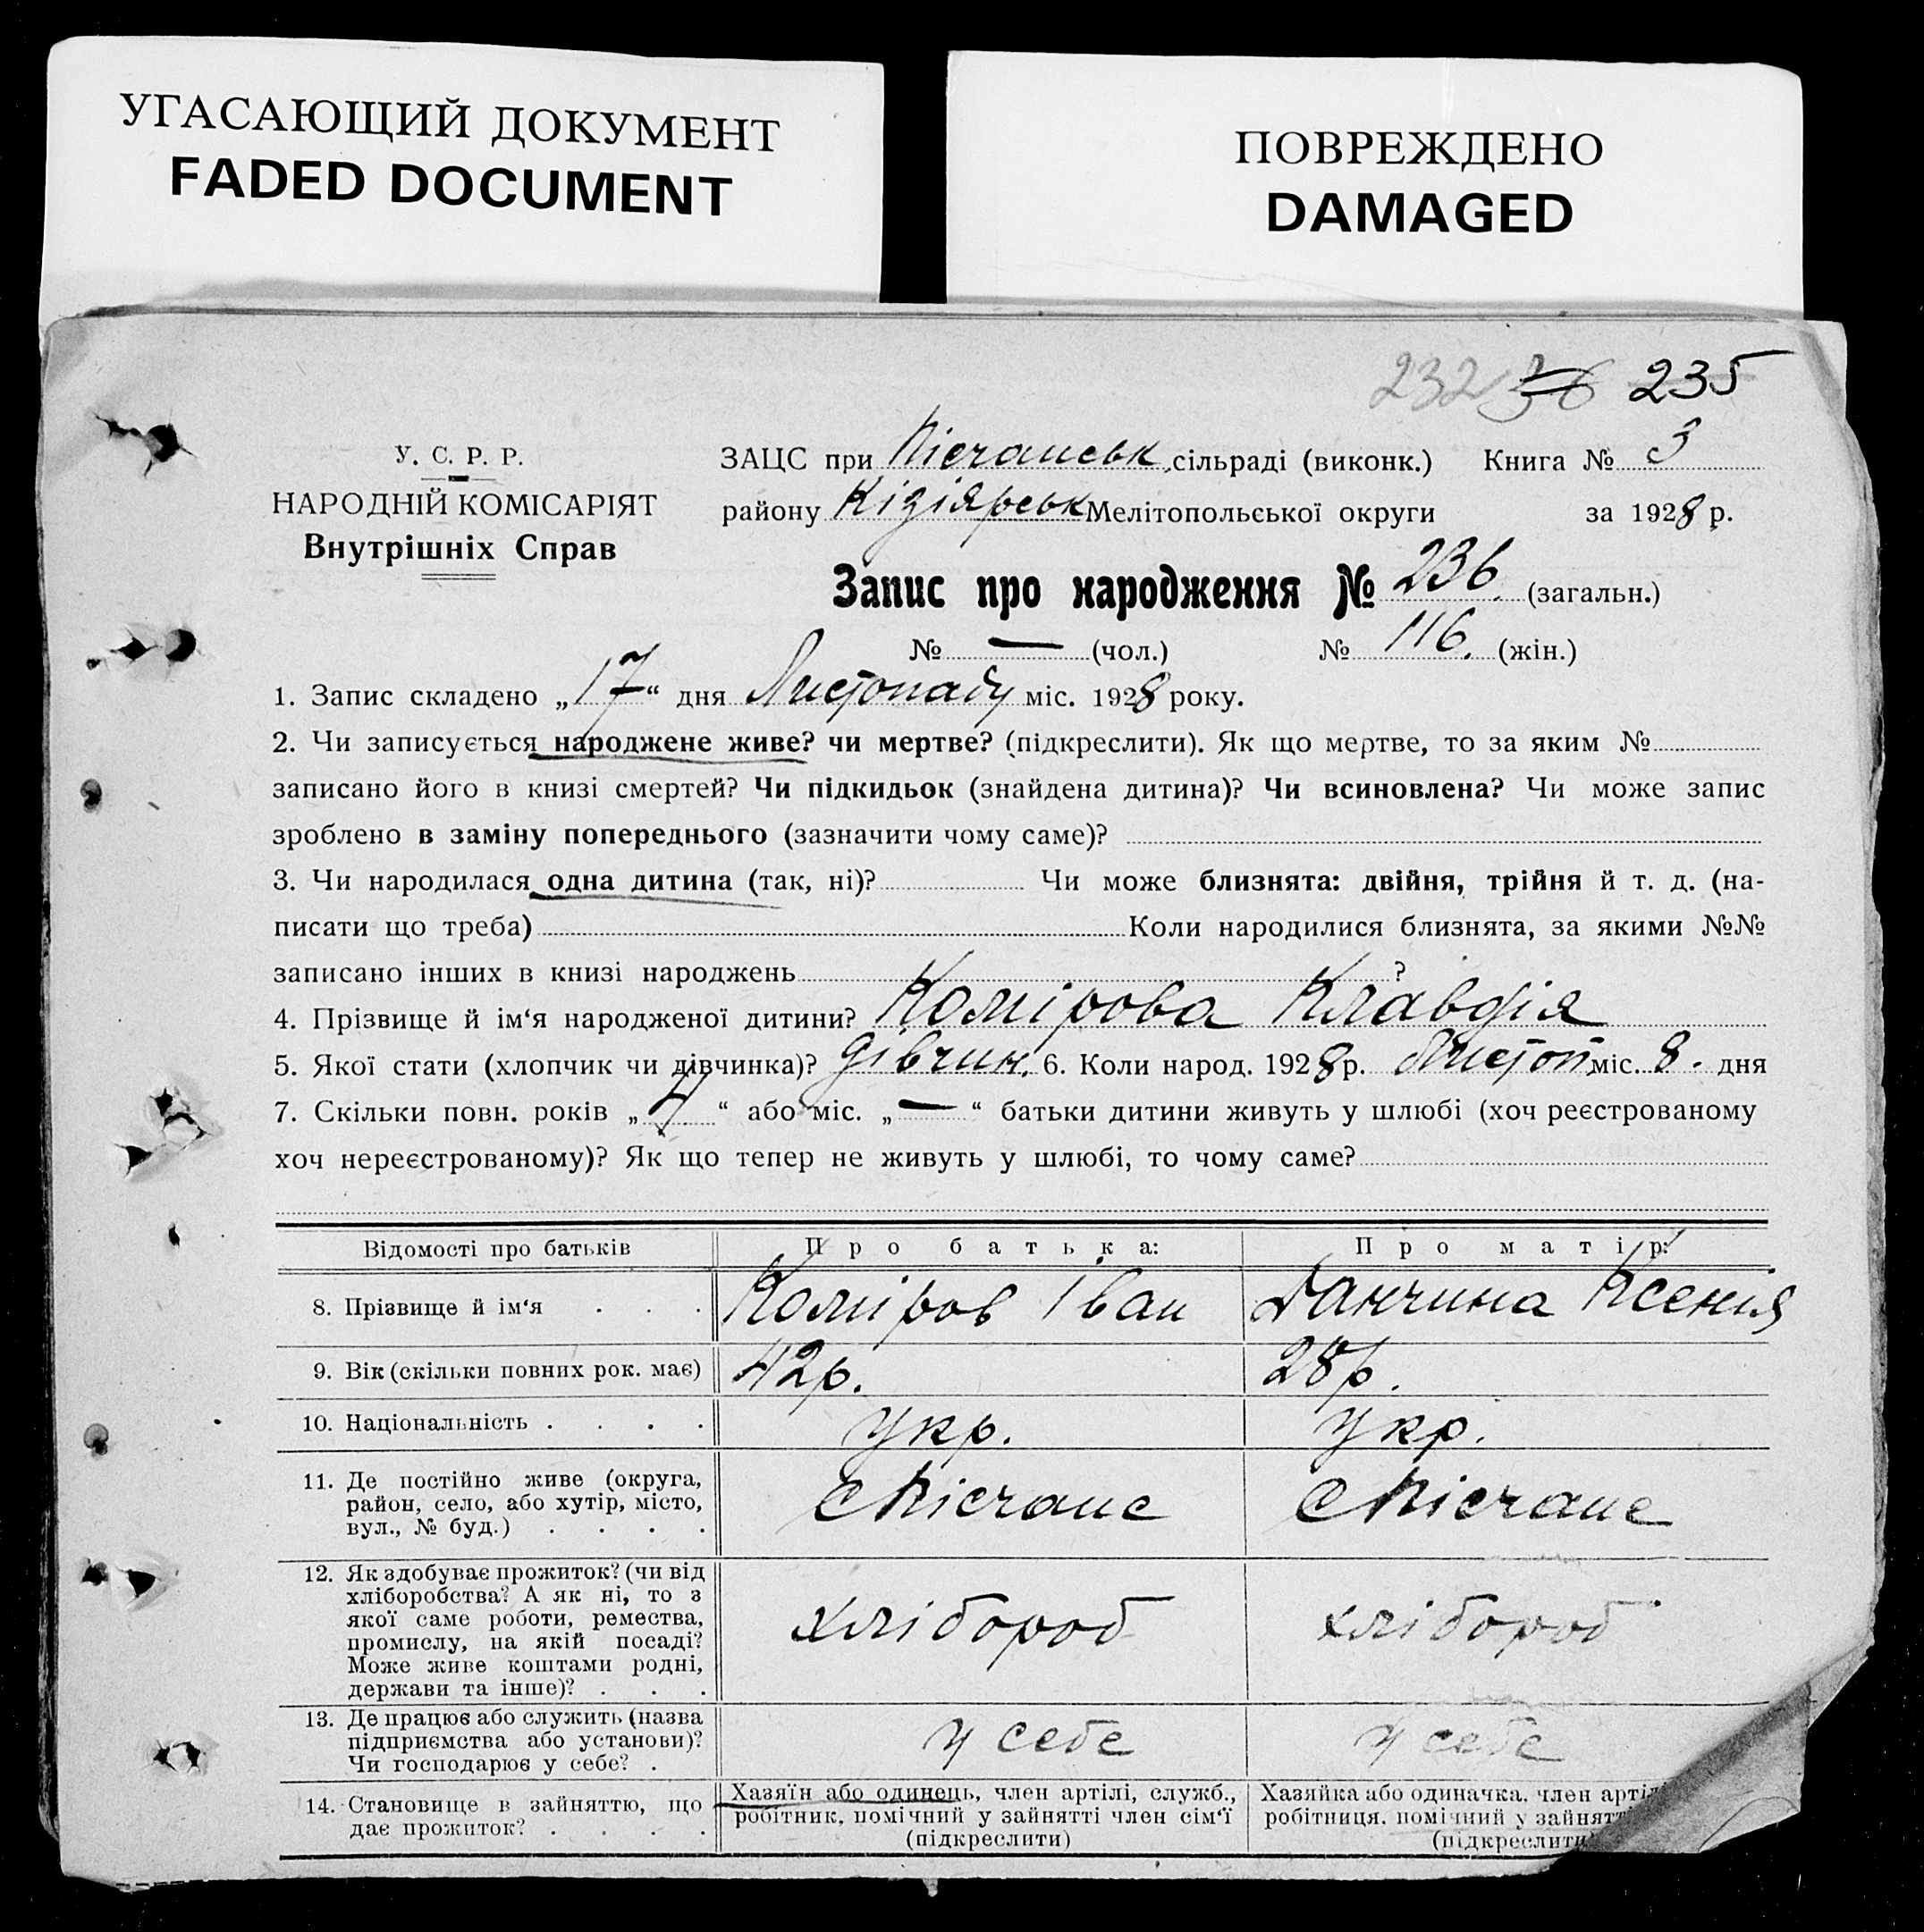 УГАСАЮЩИЙ ДОКУМЕНТ
FADED DOCUMENT
ПОВРЕЖДЕНО
DAMAGED
232 36 235
У. С. Р. Р.
НАРОДНІЙ КОМІСАРІЯТ
Внутрішніх Справ
ЗАЦС при Пісчанськ. сільраді (виконк.) Книга № 3
району Кізіярськ Мелітопольєської округи за 1928 р.
Запис про народження № 236. (загальн.)
№ — (чол.) № 116. (жін.)
1. Запис складено „17“ дня Листопаду міс. 1928 року.
2. Чи записується народжене живе? чи мертве? (підкреслити). Як що мертве, то за яким №
записано його в книзі смертей? Чи підкидьок (знайдена дитина)? Чи всиновлена? Чи може запис
зроблено в заміну попереднього (зазначити чому саме)?
3. Чи народилася одна дитина (так, ні)? Чи може близнята: двійня, трійня й т. д. (на-
писати що треба) Коли народилися близнята, за якими №№
записано інших в книзі народжень ?
4. Прізвище й ім‘я народженої дитини? Комірова Клавдія
5. Якої стати (хлопчик чи дівчинка)? дівчин. 6. Коли народ. 1928 р. Листоп. міс. 8. дня
7. Скільки повн. років „4“ або міс. „—“ батьки дитини живуть у шлюбі (хоч реєстрованому
хоч нереєстрованому)? Як що тепер не живуть у шлюбі, то чому саме?
Відомості про батьків Про батька: Про матір:
8. Прізвище й ім‘я . . . Коміров Іван Данчина Ксенія
9. Вік (скільки повних рок. має) 42р. 28р.
10. Національність . . . . укр. укр.
11. Де постійно живе (округа,
район, село, або хутір, місто,
вул., № буд.) . . . .
с Пісчане с Пісчане
12. Як здобуває прожиток? (чи від
хліборобства? А як ні, то з
якої саме роботи, ремества,
промислу, на якій посаді?
Може живе коштами родні,
держави та інше)? . . .
хлібороб хлібороб
13. Де працює або служить (назва
підприємства або установи)?
Чи господарює у себе? .
у себе у себе
14. Становище в зайняттю, що
дає прожиток? . . . .
Хазяїн або одинець, член артілі, служб.,
робітник, помічний у зайнятті член сім‘ї
(підкреслити)
Хазяйка або одиначка, член артілі
робітниця, помічний у зайнятт
(підкреслити